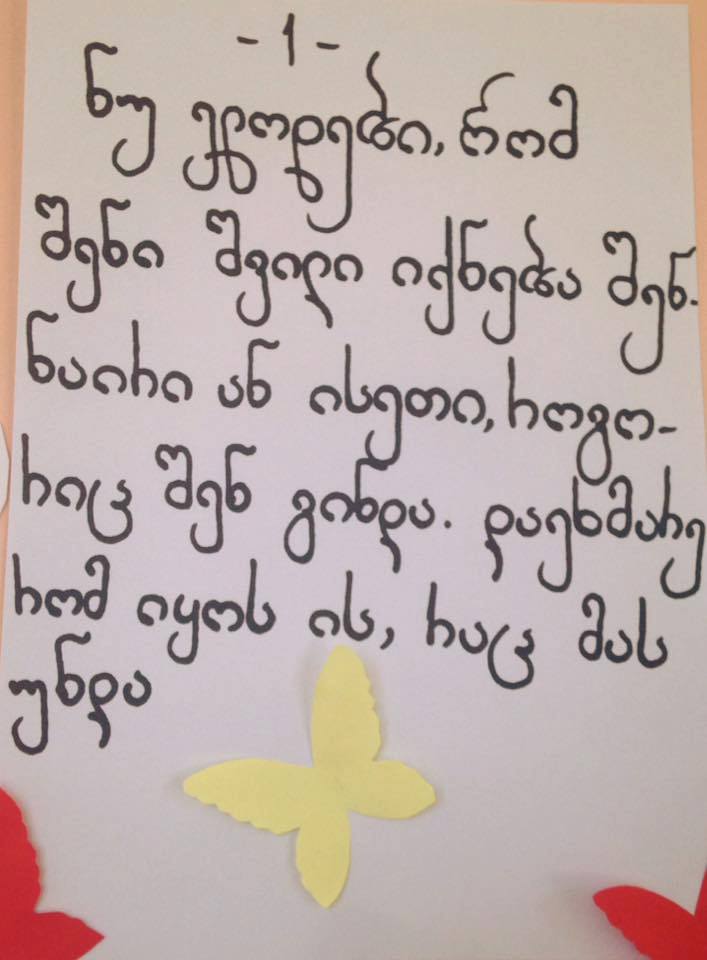 - 1 -
ნუ ელოდები, რომ
შენი შვილი იქნება შენ-
ნაირი ან ისეთი, როგო-
რიც შენ გინდა. დაეხმარე
რომ იყოს ის, რაც მას
უნდა